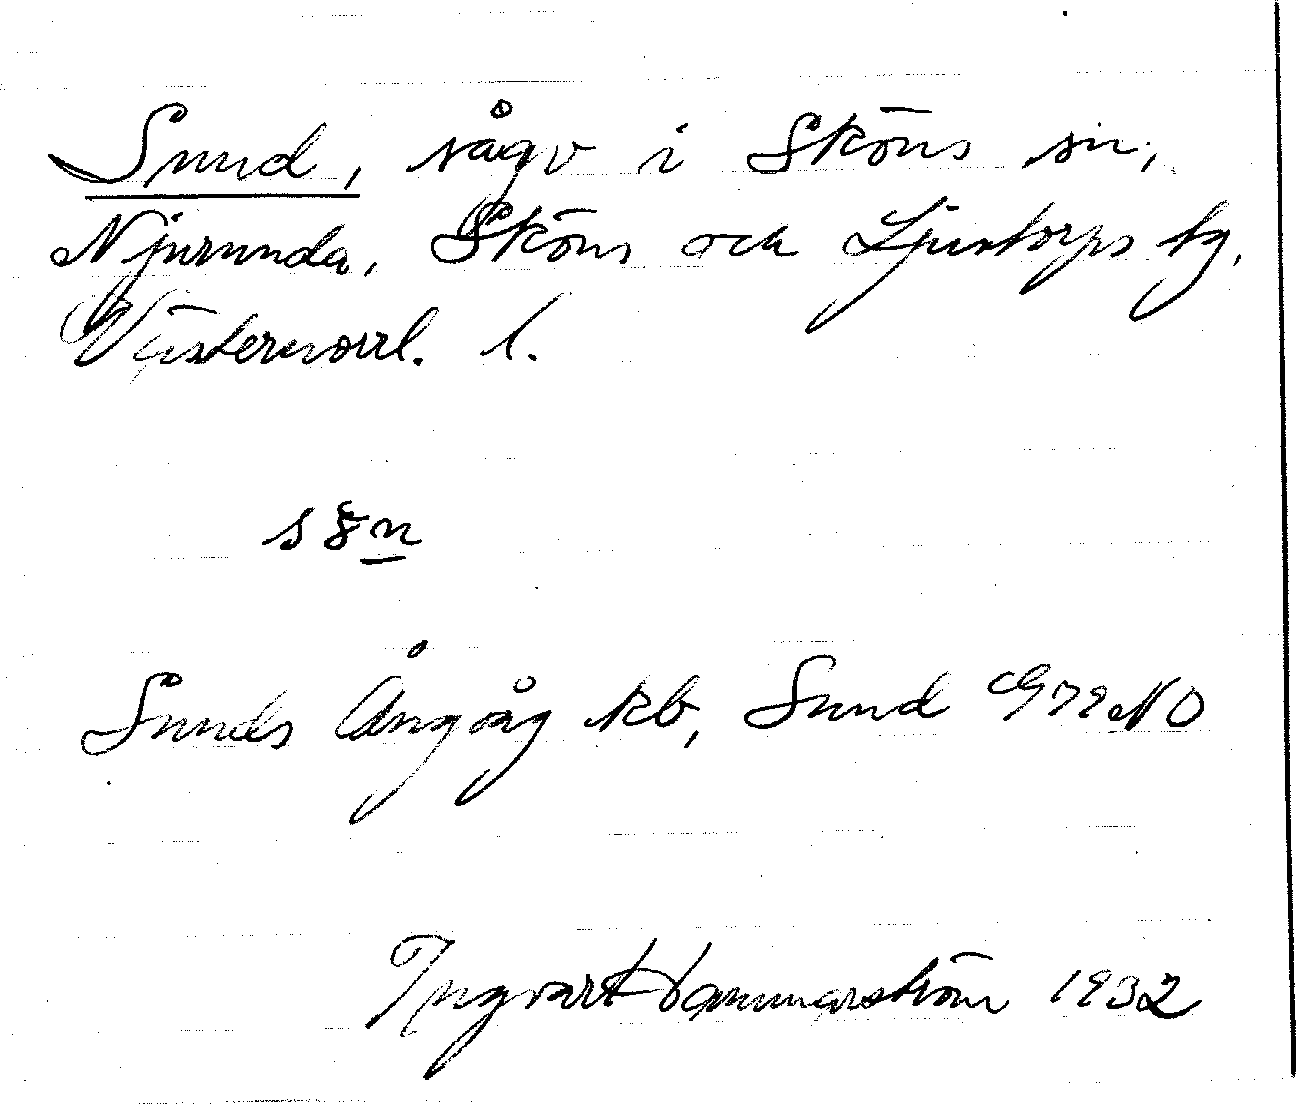 Sund, sågv i Sköns sn,
Njurunda, Sköns och Ljustorps tg,
Västernorrl. l.
Sunds Ångsåg kb, Sund G72NO
Ingvart Hammarström 1932